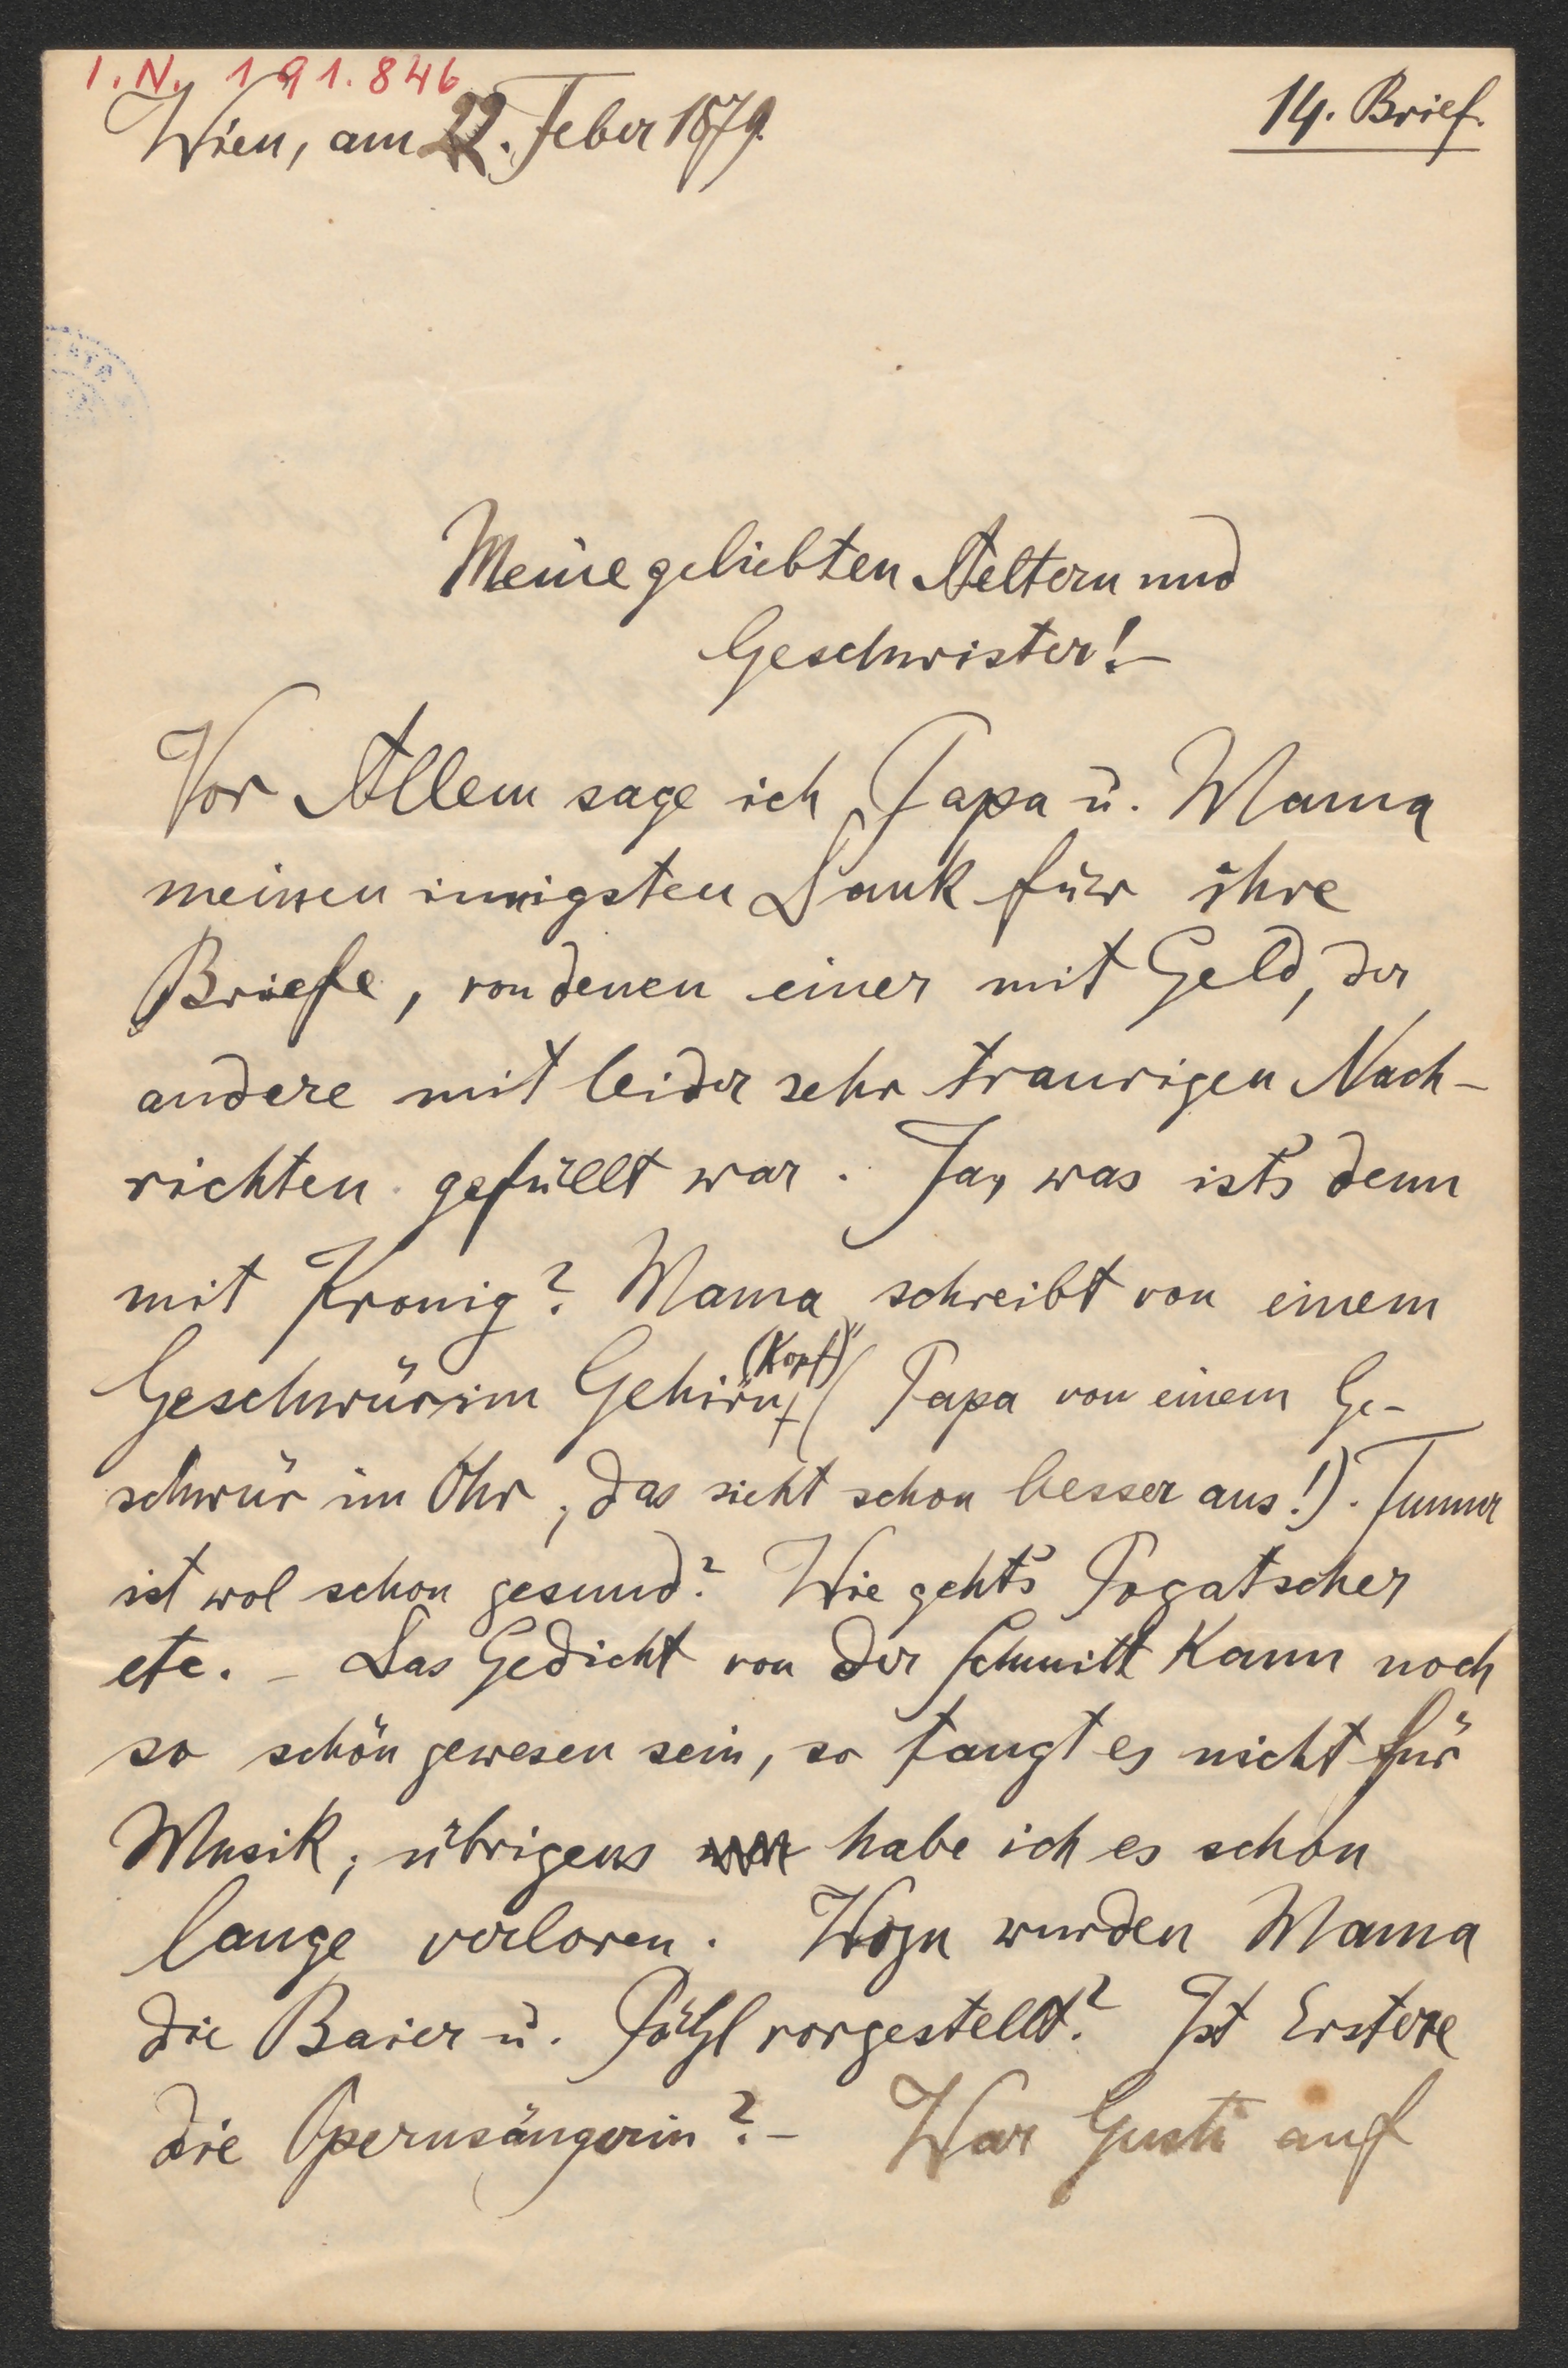 I.N. 191.846
14. Brief.
Wien, am 22. Feber 1879.
Meine geliebten Aeltern und
Geschwister! –
Vor Allem sage ich Papa u. Mama
meinen innigsten Dank für ihre
Briefe, von denen einer mit Geld, der
andere mit leider sehr traurigen Nach-
richten gefüllt war. Ja, was ist's denn
mit Kronig? Mama schreibt von einem
(Kopf)
Geschwür im Gehirn, (Papa von einem Ge-
schwür im Ohr, das sieht schon besser aus!).
ist wol schon gesund? Wie geht's Pogatscher
etc. – Das Gedicht von der Schmitt kann noch
so schön gewesen sein, so taugt es nicht für
Musik; übrigens habe ich es schon
lange verloren. Wozu wurden Mama
die Baier u. vorgestellt? Ist Erstere
die Opernsängerin? – War Gusti auf